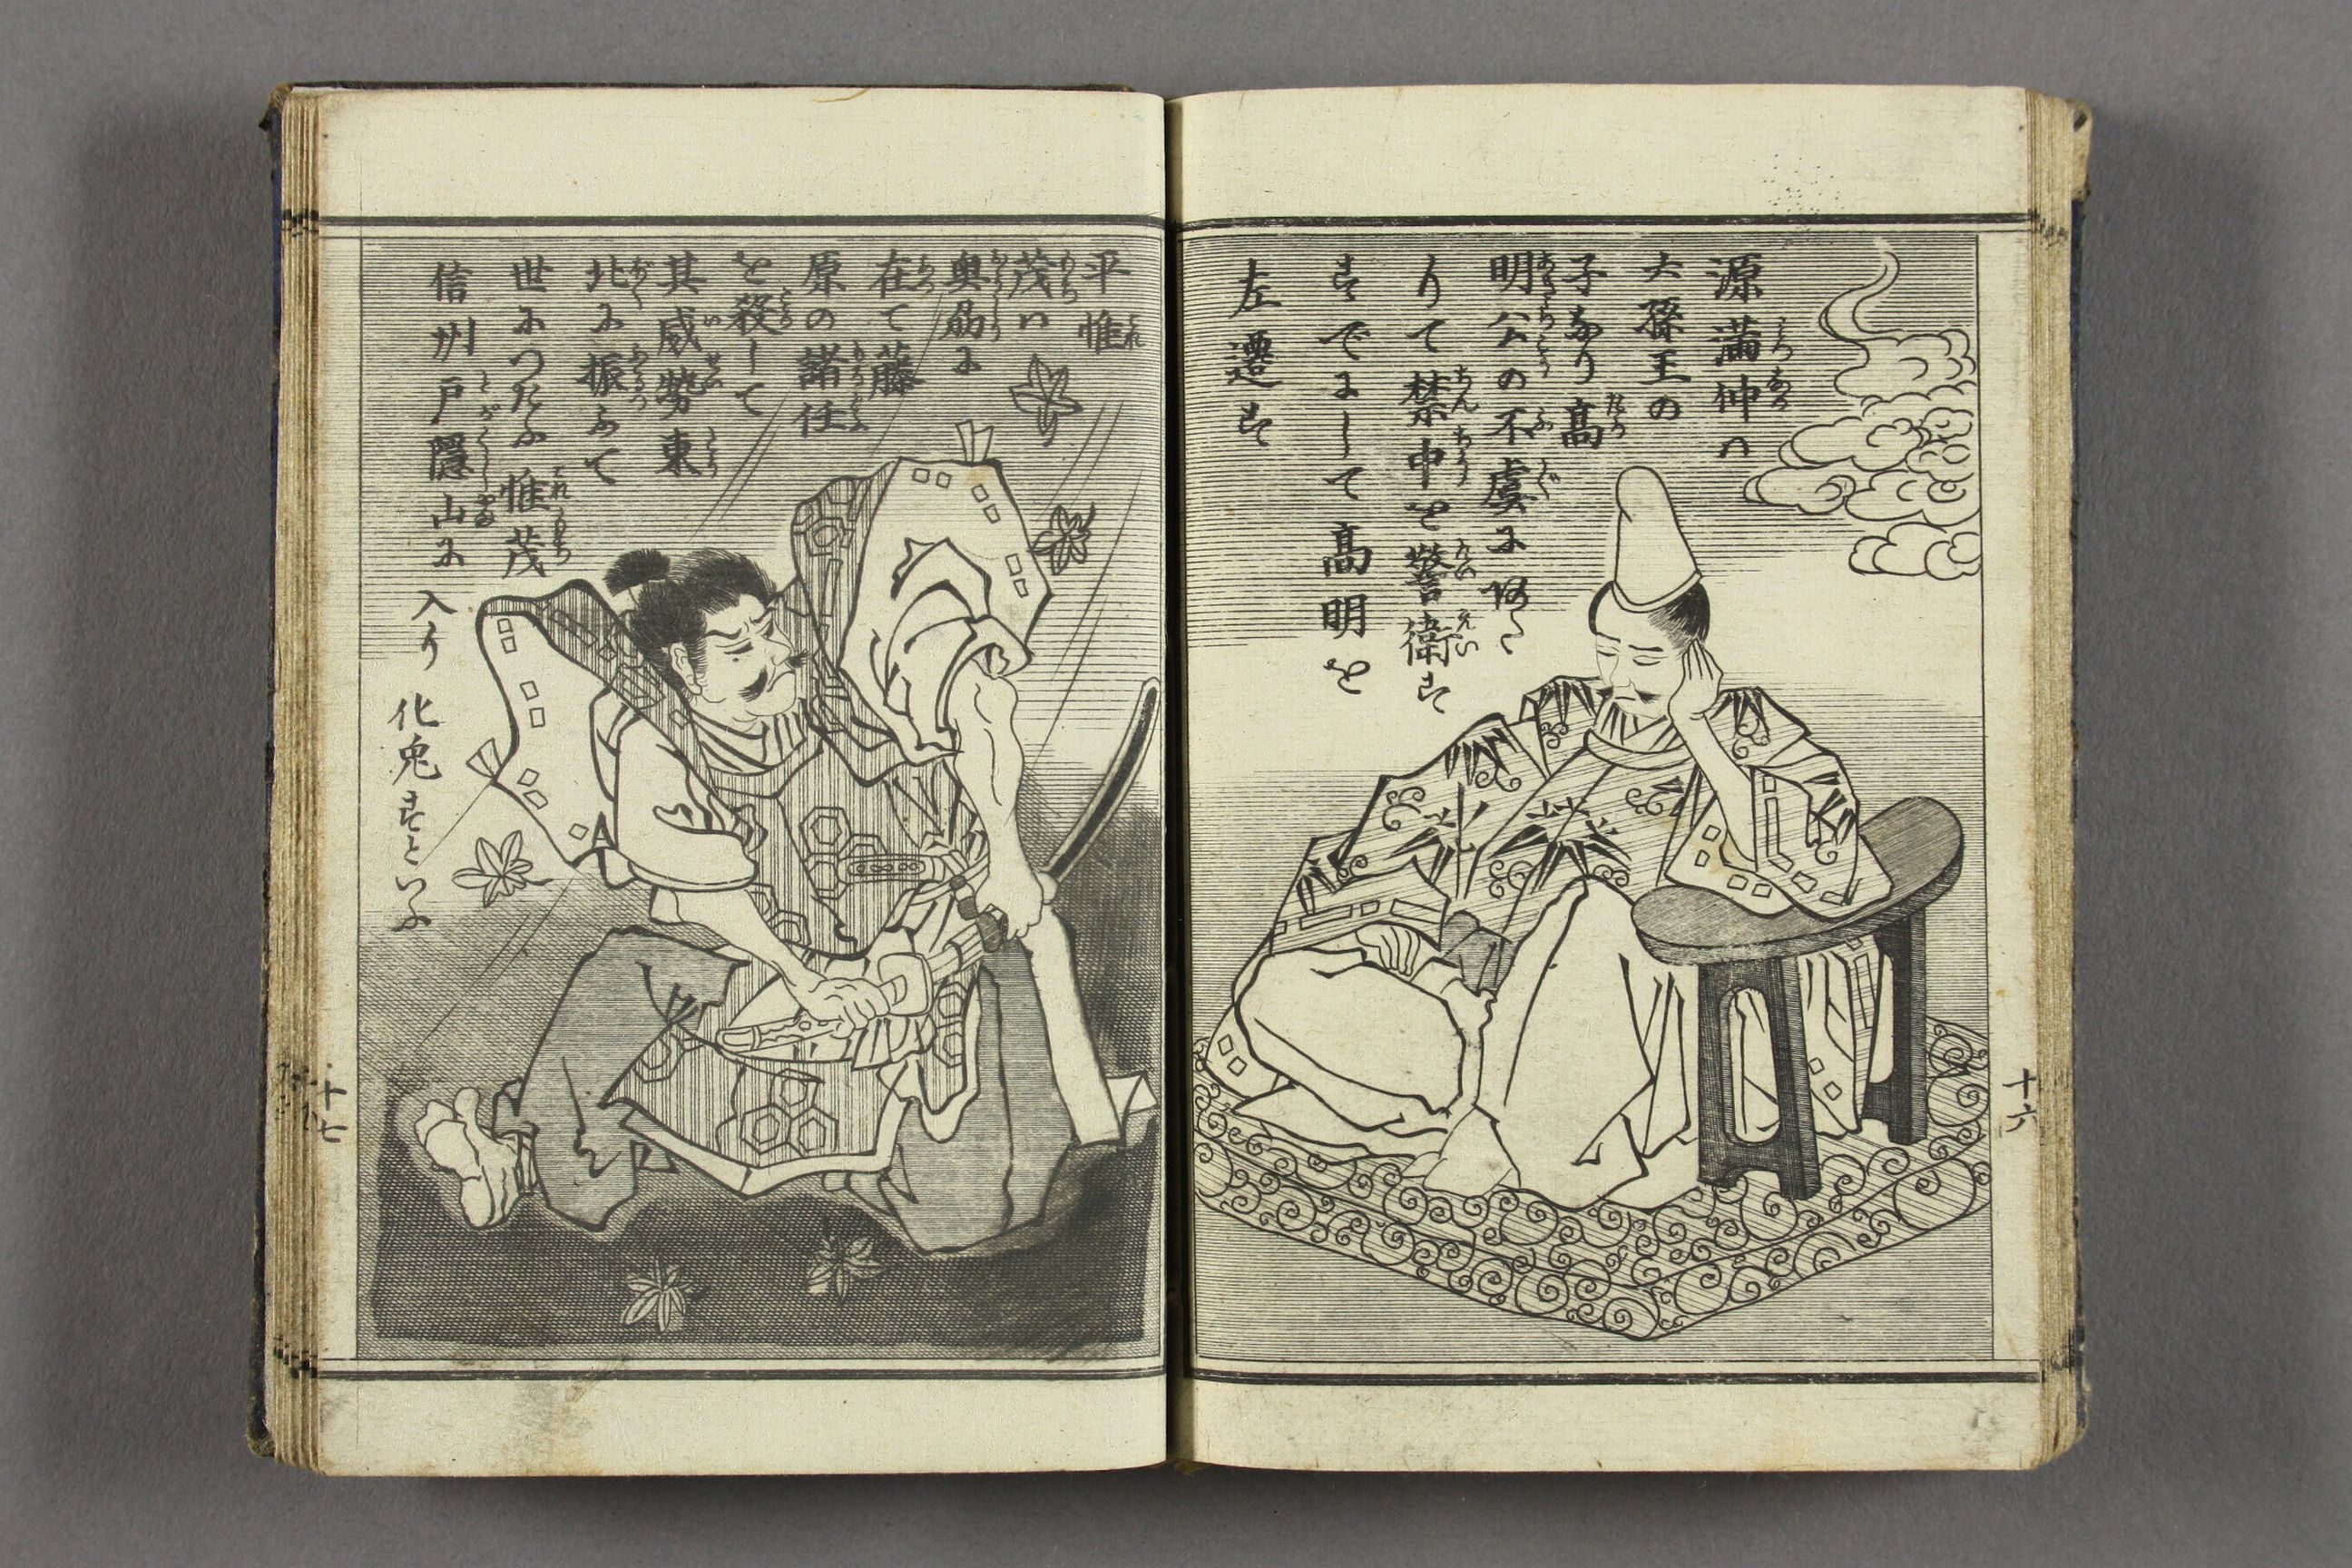 源満仲ハ
六孫王の
子なり高
明公の不虞に
りて禁中を警衛す
すでにして高明を
左遷す
十六
平惟
茂ハ
奥刕に
在て藤
原の諸任
を殺して
其威勢東
北に振ふて
世につたふ惟茂
信州戸隠山に入り
化兎すといふ
十七